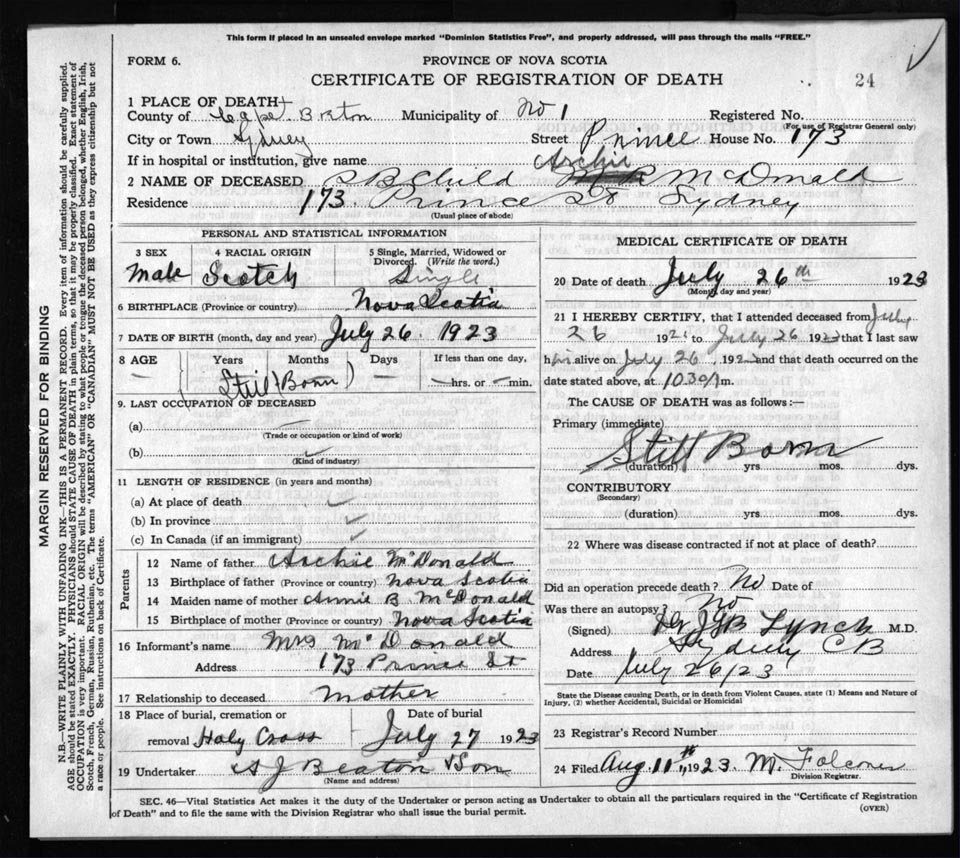 This form if placed in an unsealed envelope marked "Dominion Statistics Free", and properly addressed, will pass through the mails "FREE."
FORM 6.
PROVINCE OF NOVA SCOTIA
CERTIFICATE OF REGISTRATION OF DEATH
24
1 PLACE OF DEATH
County of Cape Breton Municipality of No 1 Registered No.
(For use of Registrar General only)
City or Town Sydney Street Prince House No. 173
If in hospital or institution, give name
Archie
2 NAME OF DECEASED SB Child McDonald
Residence 173 Prince St Sydney
(Usual place of abode)
PERSONAL AND STATISTICAL INFORMATION
3 SEX 4 RACIAL ORIGIN 5 Single, Married, Widowed or Divorced. (Write the word.)
Male Scotch Single
6 BIRTHPLACE (Province or country) Nova Scotia
7 DATE OF BIRTH (month, day and year) July 26 1923
8 AGE Years Months Days If less than one day,
— (Still Born) — —hrs. or —min.
9. LAST OCCUPATION OF DECEASED
(a)
(Trade or occupation or kind of work)
(b)
(Kind of industry)
11 LENGTH OF RESIDENCE (in years and months)
(a) At place of death
(b) In province
(c) In Canada (if an immigrant)
Parents
12 Name of father Archie McDonald
13 Birthplace of father (Province or country) Nova Scotia
14 Maiden name of mother Annie B McDonald
15 Birthplace of mother (Province or country) Nova Scotia
16 Informant's name Mrs McDonald
Address 173 Prince St
17 Relationship to deceased mother
18 Place of burial, cremation or removal Holy Cross
Date of burial July 27 1923
19 Undertaker A J Beaton & Son
(Name and address)
MEDICAL CERTIFICATE OF DEATH
20 Date of death July 26th 1923
(Month, day and year)
21 I HEREBY CERTIFY, that I attended deceased from July
26 192 to July 26 1923 that I last saw
h alive on July 26, 192 and that death occurred on
date stated above, at 1030 A m.
The CAUSE OF DEATH was as follows:—
Primary (immediate)
Still Born
(duration) yrs. mos. dys.
CONTRIBUTORY
(Secondary)
(duration) yrs. mos. dys.
22 Where was disease contracted if not at place of death?
Did an operation precede death? No Date of
Was there an autopsy? No
(Signed) Dr JGB Lynch M.D.
Address Sydney CB
Date July 26/23
State the Disease causing Death, or in death from Violent Causes, state (1) Means and Nature of Injury, (2) whether Accidental, Suicidal or Homicidal
23 Registrar's Record Number
24 Filed Aug 11th, 1923. M. Falconer
Division Registrar.
SEC. 46—Vital Statistics Act makes it the duty of the Undertaker or person acting as Undertaker to obtain all the particulars required in the "Certificate of Registration
of Death" and to file the same with the Division Registrar who shall issue the burial permit.
(OVER)
MARGIN RESERVED FOR BINDING
N.B.—WRITE PLAINLY WITH UNFADING INK—THIS IS A PERMANENT RECORD. Every item of information should be carefully supplied.
AGE should be stated EXACTLY. PHYSICIANS should STATE CAUSE OF DEATH in plain terms, so that it may be properly classified. Exact statement of
OCCUPATION is very important. RACIAL ORIGIN will be described by stating to what people or tongue the deceased person belonged, whether English, Irish,
Scotch, French, German, Russian, Ruthenian, etc. The terms "AMERICAN" or "CANADIAN" MUST NOT BE USED as they express citizenship but not
a race or people. See instructions on back of Certificate.